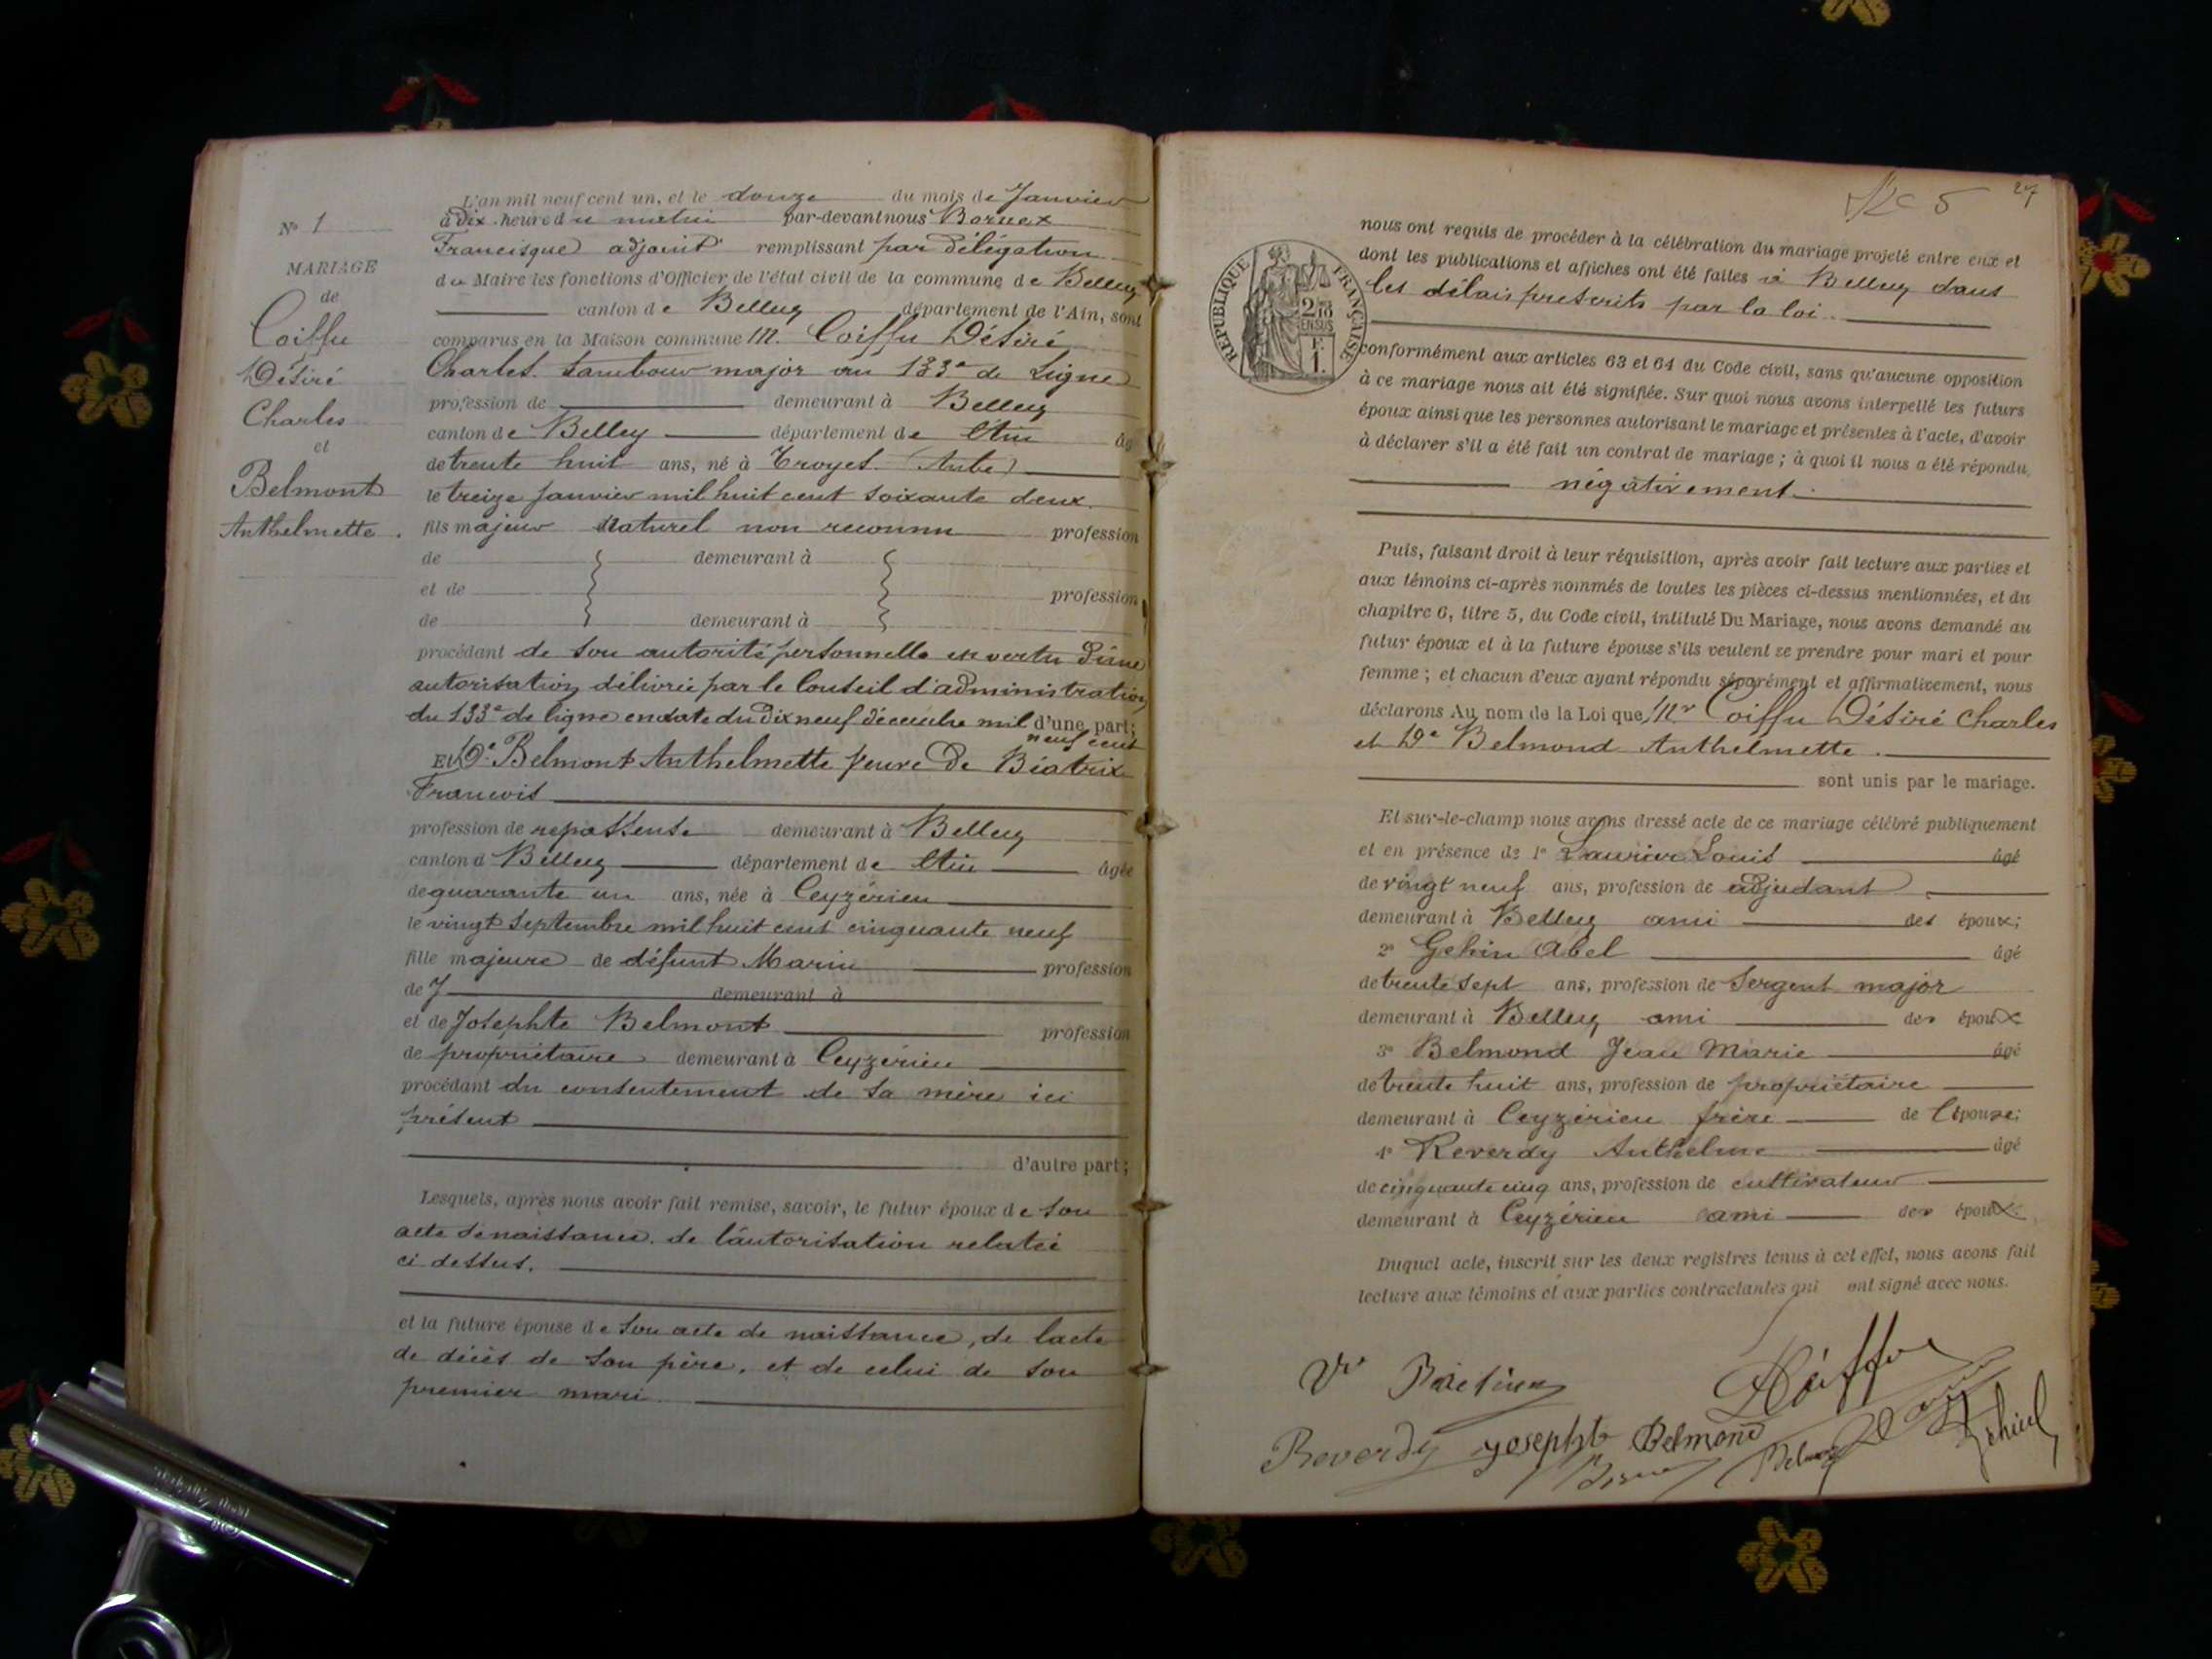 N° 1
MARIAGE
de
Coiffu
Désiré
Charles
et
Belmont
Anthelmette.
L'an mil neuf cent un, et le douze du mois de Janvier
à dix heure du matin par-devant nous
Francisque adjoint remplissant par délégation
du Maire les fonctions d'Officier de l'état civil de la commune de Belley
canton de Belley département de l'Ain, sont
comparus en la Maison commune M. Coiffu Désiré
Charles. tambour major au 133e de Ligne
profession de demeurant à Belley
canton de Belley département de l'Ain âgé
de trente huit ans, né à Troyes (Aube)
le treize Janvier mil huit cent soixante deux.
fils majeur Naturel non reconnu profession
de demeurant à
et de profession
de demeurant à
procédant de son autorité personnelle en vertu d'une
autorisation délivrée par le Conseil d'administration
du 133e de ligne en date du dix neuf décembre mil d'une part;
neuf cent
Et De Belmont Anthelmette veuve De Béatrix
François
profession de repasseuse demeurant à Belley
canton d Belley département de l'Ain âgée
de quarante un ans, née à Ceyzérieu
le vingt Septembre mil huit cent cinquante neuf
fille majeure de défunt Marin profession
de demeurant à
et de Josephte Belmont profession
de propriétaire demeurant à Ceyzérieu
procédant du consentement de sa mère ici
présent
d'autre part;
Lesquels, après nous avoir fait remise, savoir, le futur époux de son
acte de naissance, de l'autorisation relatée
ci dessus.
et la future épouse de son acte de naissance, de l'acte
de décès de son père, et de celui de son
premier mari
27
RÉPUBLIQUE FRANÇAISE
2/10
EN SUS
F.
1.
nous ont requis de procéder à la célébration du mariage projeté entre eux et
dont les publications et affiches ont été faites à Belley dans
les délais prescrits par la loi.
conformément aux articles 63 et 64 du Code civil, sans qu'aucune opposition
à ce mariage nous ait été signifiée. Sur quoi nous avons interpellé les futurs
époux ainsi que les personnes autorisant le mariage et présentes à l'acte, d'avoir
à déclarer s'il a été fait un contrat de mariage; à quoi il nous a été répondu
négativement.
Puis, faisant droit à leur réquisition, après avoir fait lecture aux parties et
aux témoins ci-après nommés de toutes les pièces ci-dessus mentionnées, et du
chapitre 6, titre 5, du Code civil, intitulé Du Mariage, nous avons demandé au
futur époux et à la future épouse s'ils veulent se prendre pour mari et pour
femme; et chacun d'eux ayant répondu séparément et affirmativement, nous
déclarons Au nom de la Loi que Mr Coiffu Désiré Charles
et De Belmond Anthelmette.
sont unis par le mariage.
Et sur-le-champ nous avons dressé acte de ce mariage célébré publiquement
et en présence de 1° Louis âgé
de vingt neuf ans, profession de adjudant
demeurant à Belley ami des époux;
2° Gehin Abel âgé
de trente sept ans, profession de Sergent major
demeurant à Belley ami des époux
3° Belmond Jean Marie âgé
de trente huit ans, profession de propriétaire
demeurant à Ceyzérieu frère de l'épouse;
4° Reverdy Anthelme âgé
de cinquante cinq ans, profession de cultivateur
demeurant à Ceyzérieu ami des époux.
Duquel acte, inscrit sur les deux registres tenus à cet effet, nous avons fait
lecture aux témoins et aux parties contractantes qui ont signé avec nous.
Ve Coiffu
Reverdy Josephte Belmond